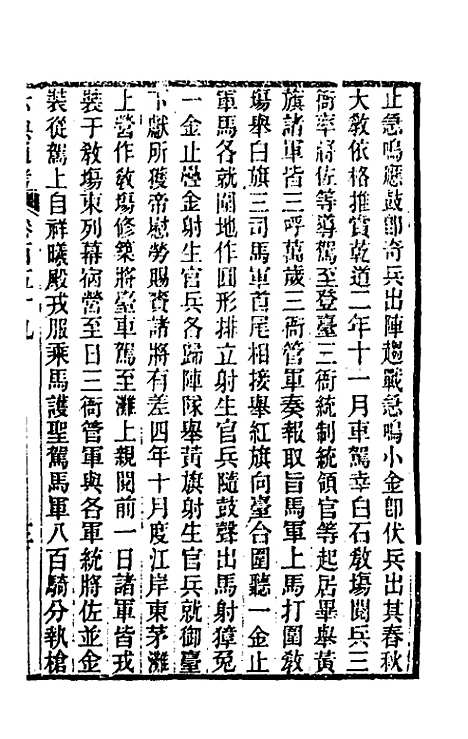 止急鳴應鼓即奇兵出陣趨戰急鳴小金即伏兵出其春秋
大敎依格推賞乾道二年十一月車駕幸白石敎場閱兵三
衙率將佐等導駕至登臺三衙統制統領官等起居畢舉黃
旗諸軍皆三呼萬歲三衙管軍奏報取旨馬軍上馬打圍敎
場舉白旗三司馬軍首尾相接舉紅旗向臺合圍聽一金止
軍馬各就圍地作圓形排立射生官兵隨鼓聲出馬射獐兔
一金止疊金射生官兵各歸陣隊舉黃旗射生官兵就御臺
下獻所獲帝慰勞賜賚諸將有差四年十月度江岸東茅灘
上營作敎場修築將臺車駕至灘上親閱前一日諸軍皆戎
裝于敎場東列幕宿營至日三衙管軍與各軍統將佐並金
裝從駕上自祥曦殿戎服乘馬護聖駕馬軍八百騎分執槍
通考 卷百五十九